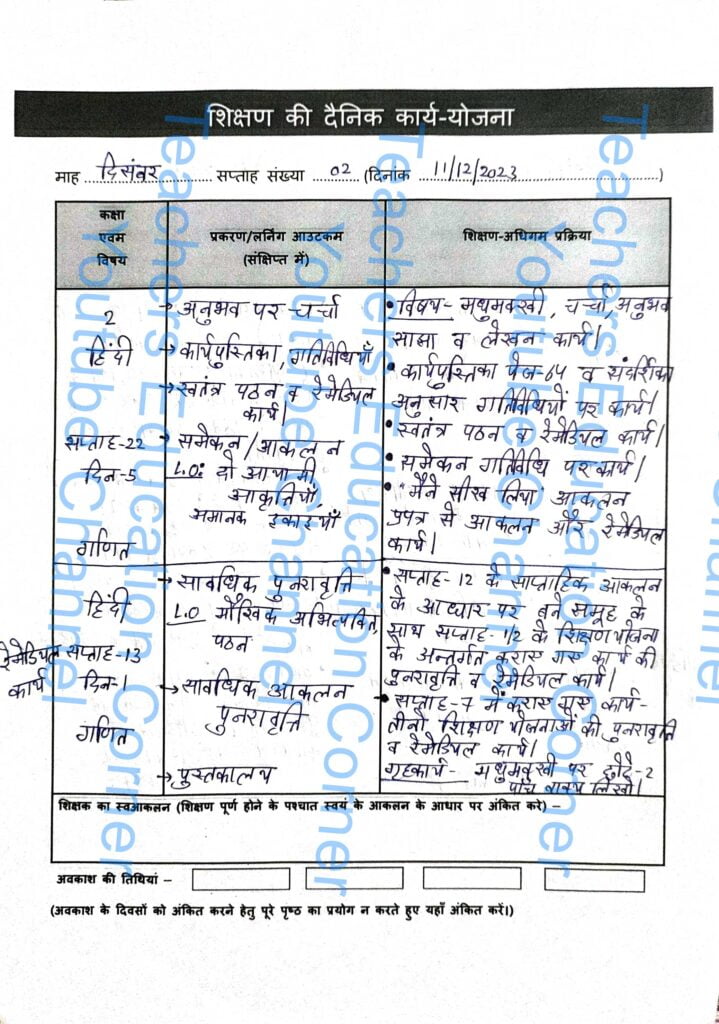 शिक्षण की दैनिक कार्य-योजना
माह दिसंबर सप्ताह संख्या 02 (दिनांक 11/12/2023)
कक्षा
एवम
विषय
प्रकरण/लर्निंग आउटकम
(संक्षिप्त में)
शिक्षण-अधिगम प्रक्रिया
2
हिंदी
सप्ताह-22
दिन-5
गणित
→ अनुभव पर चर्चा
→ कार्यपुस्तिका, गतिविधियाँ
→ स्वतंत्र पठन व रेमेडियल
कार्य।
→ समेकन/आकलन
L.O: दो आयामी
आकृतियाँ,
अमानक इकाइयाँ
• विषय- मधुमक्खी, चर्चा, अनुभव
साझा व लेखन कार्य।
• कार्यपुस्तिका पेज-64 व संदर्शिका
अनुसार गतिविधियों पर कार्य।
• स्वतंत्र पठन व रेमेडियल कार्य।
• समेकन गतिविधि पर कार्य।
• "मैंने सीख लिया" आकलन
प्रपत्र से आकलन और रेमेडियल
कार्य।
हिंदी
रेमेडियल सप्ताह-13
कार्य दिन-1
गणित
→ सावधिक पुनरावृत्ति
L.O मौखिक अभिव्यक्ति,
पठन
→ सावधिक आकलन
पुनरावृत्ति
→ पुस्तकालय
• सप्ताह-12 के साप्ताहिक आकलन
के आधार पर बने समूह के
साथ सप्ताह-1/2 के शिक्षण योजना
के अन्तर्गत कराए गए कार्य की
पुनरावृत्ति व रेमेडियल कार्य।
• सप्ताह-7 में कराए गए कार्य-
तीनों शिक्षण योजनाओं की पुनरावृत्ति
व रेमेडियल कार्य।
गृहकार्य- मधुमक्खी पर छोटे-2
पाँच वाक्य लिखो।
शिक्षक का स्वआकलन (शिक्षण पूर्ण होने के पश्चात स्वयं के आकलन के आधार पर अंकित करे) –
अवकाश की तिथियां –
(अवकाश के दिवसों को अंकित करने हेतु पूरे पृष्ठ का प्रयोग न करते हुए यहाँ अंकित करें।)
Teachers Education Corner
Youtube Channel
Teachers Education Corner
Youtube Channel
Teachers Education Corner
Youtube Channel